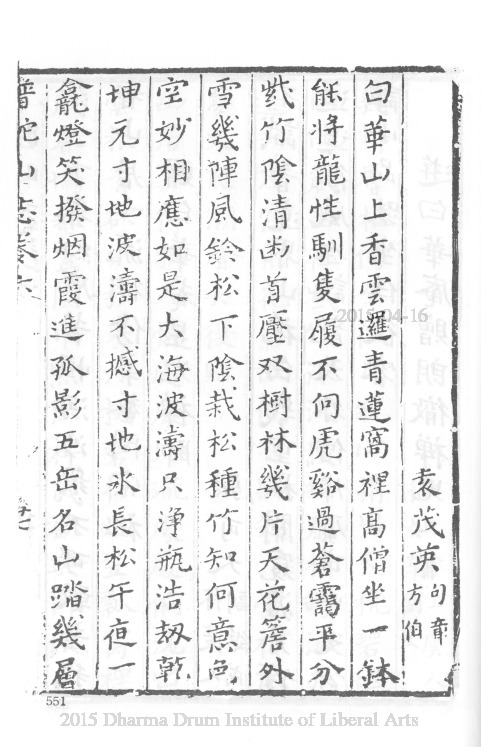 袁茂英句章方伯
白華山上香雲邏青蓮窩裡高僧坐一鉢
能將龍性馴隻履不向虎谿過蒼靄平分
紫竹陰清幽首壓双樹林幾片天花簷外
雪幾陣風鈴松下陰栽松種竹知何意色
空妙相應如是大海波濤只淨瓶浩刼乾
坤元寸地波濤不撼寸地氷長松午夜一
龕燈笑撥烟霞進孤影五岳名山踏幾層
普陀山志卷六
551
2019-04-16
2015 Dharma Drum Institute of Liberal Arts